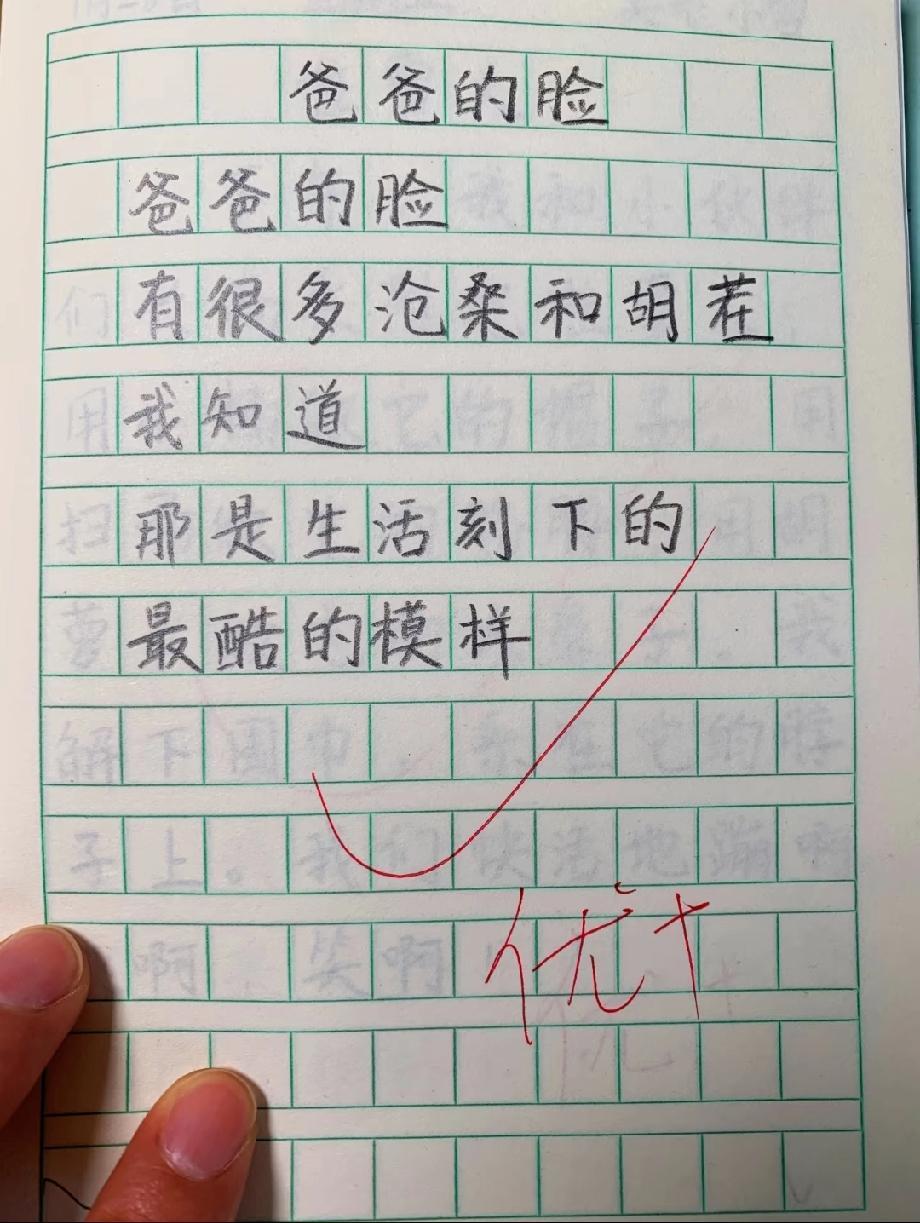 爸爸的脸
爸爸的脸
有很多沧桑和胡茬
我知道
那是生活刻下的
最酷的模样
优+